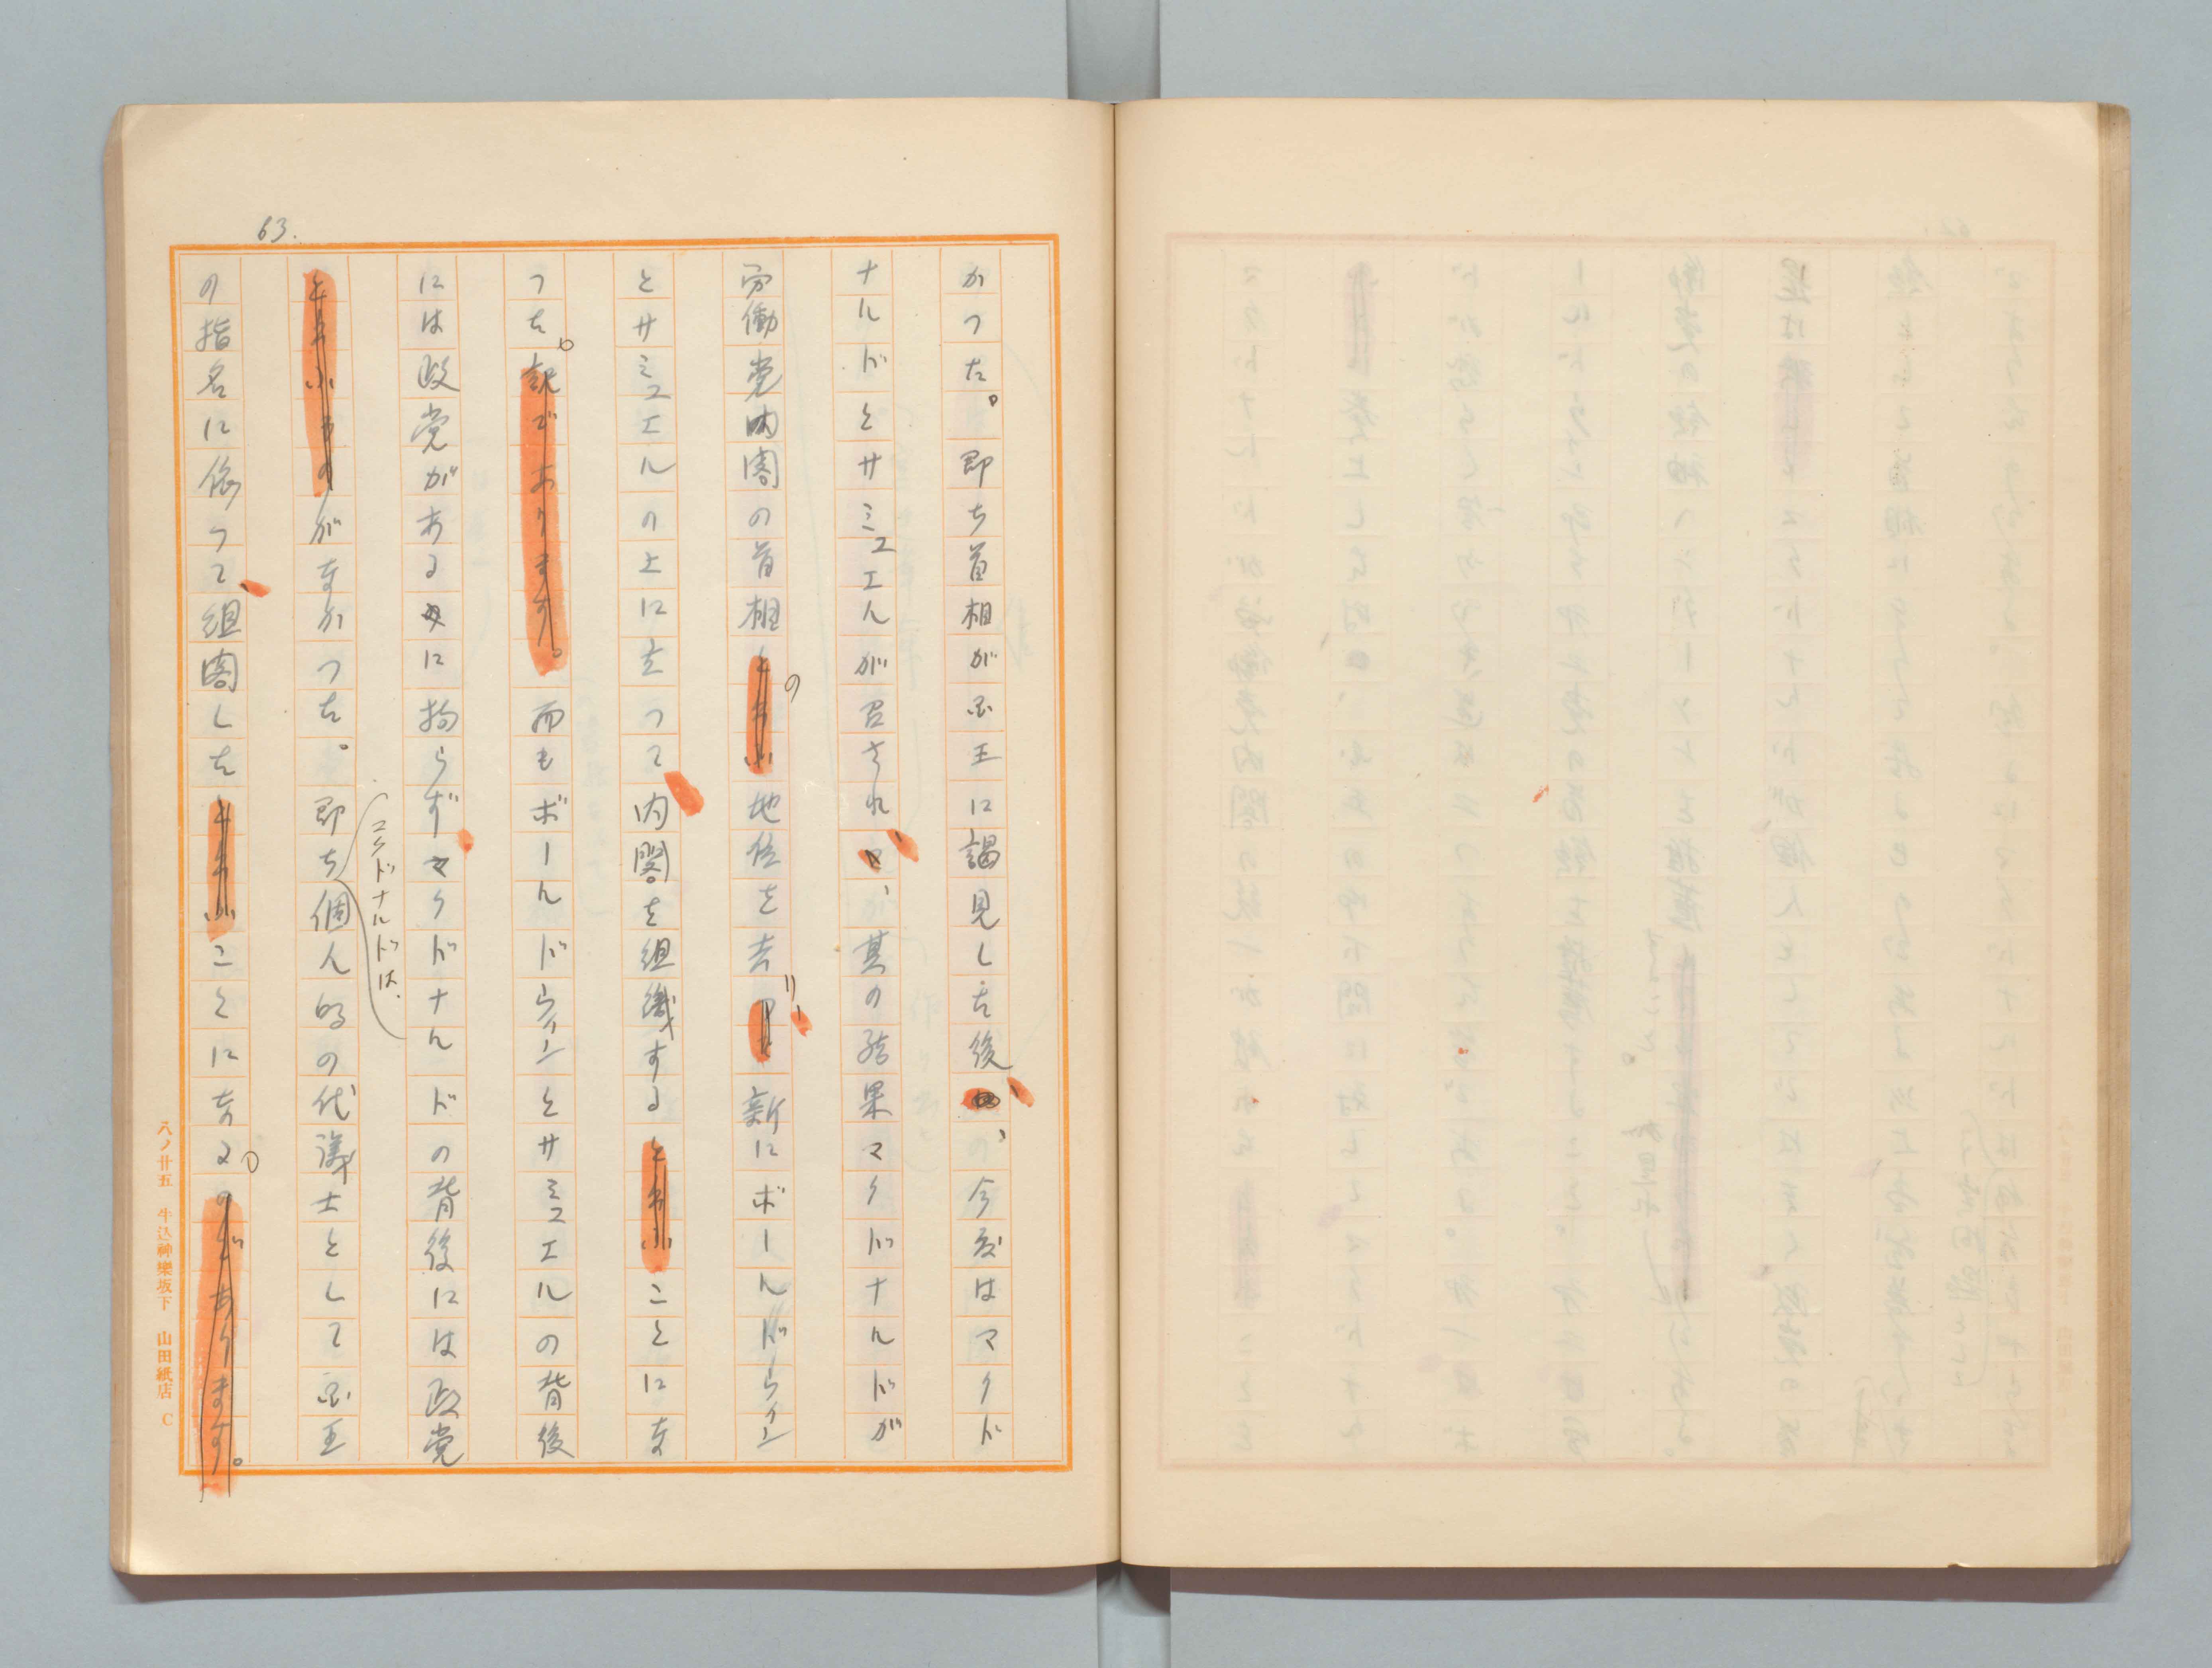 63.
かつた。即ち首相が国王に謁見した後、今度はマクド
ナルドとサミユエルが召され、其の結果マクドナルドが
労働党内閣の首相といふの地位を去り、新にボールドウィン
とサミユエルの上に立つて内閣を組織するといふことにな
つた。訳であります。而もボールドウィンとサミユエルの背後
には政党があるに拘らずマクドナルドの背後には政党
といふものがなかつた。即ち個人的の代議士として国王
マクドナルドは、
の指名に依つて組閣したといふことになる。のであります。
八ノ廿五 牛込神樂坂下 山田紙店 C